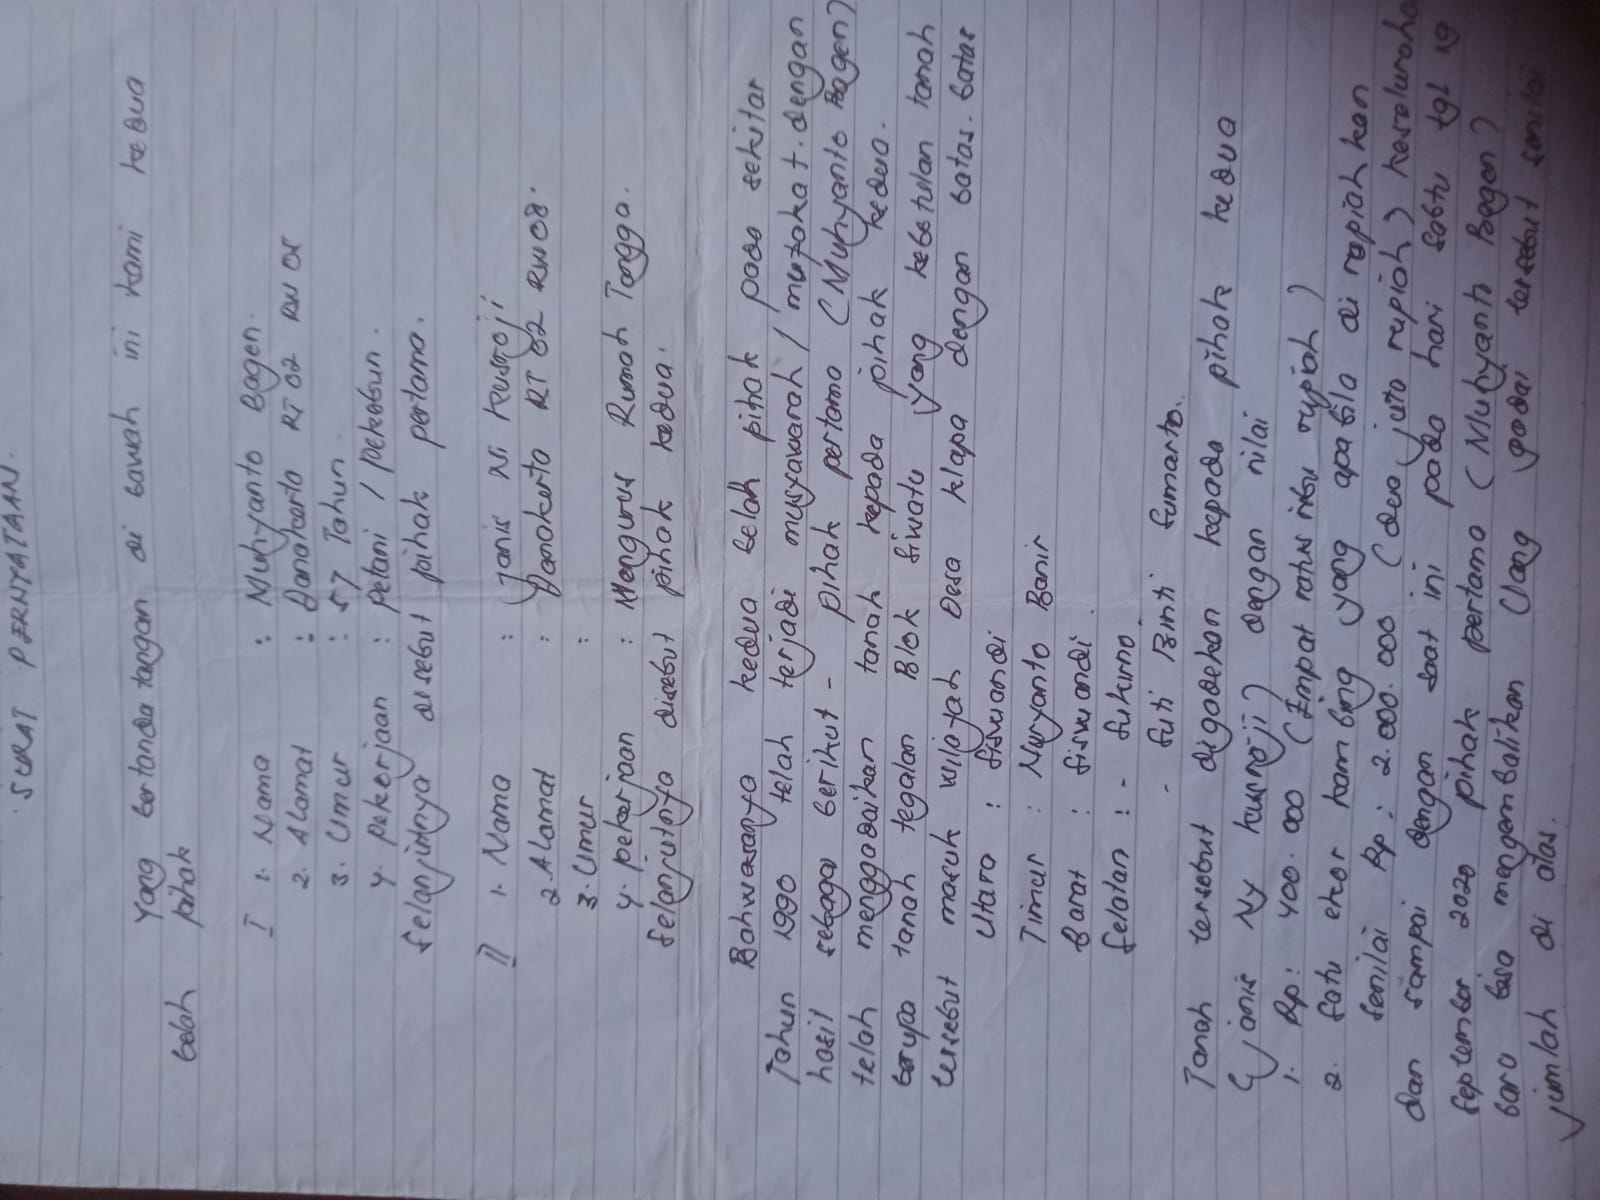 SURAT PERNYATAAN.
Yang bertanda tangan di bawah ini kami kedua
belah pihak
I 1. Nama : Muhyanto Bagen.
2. Alamat : Danakerto RT 02 RW 08
3. Umur : 57 Tahun.
4. pekerjaan : petani / pekebun.
Selanjutnya disebut pihak pertama.
II 1. Nama : Janis Ni Kusroji
2. Alamat : Danakerto RT 02 RW 08.
3. Umur :
4. pekerjaan : Mengurus Rumah Tangga.
Selanjutnya disebut pihak kedua.
Bahwasanya kedua belah pihak pada sekitar
Tahun 1990 telah terjadi musyawarah / mufakat. dengan
hasil sebagai berikut - pihak pertama (Muhyanto Bagen)
telah menggadaikan tanah kepada pihak kedua.
berupa tanah tegalan Blok Siwatu yang kebetulan tanah
tersebut masuk wilayah Desa Klapa dengan batas. batas
Utara : Siswandi
Timur : Nuryanto Banir
Barat : Siswandi.
Selatan : - Sukirno
- Suti Binti Sumarto.
Tanah tersebut digadekan kepada pihak kedua
(Janis Ny kusroji) dengan nilai
1. Rp: 400.000 (Empat ratus ribu rupiah)
2. Satu ekor kambing yang apabila di rupiahkan
senilai Rp: 2.000.000 (dua juta rupiah) keseluruhan
dan sampai dengan saat ini pada hari sabtu tgl 19
September 2020 pihak pertama (Muhyanto Bagen)
baru bisa mengembalikan Uang gadai tersebut senilai
jumlah di atas.